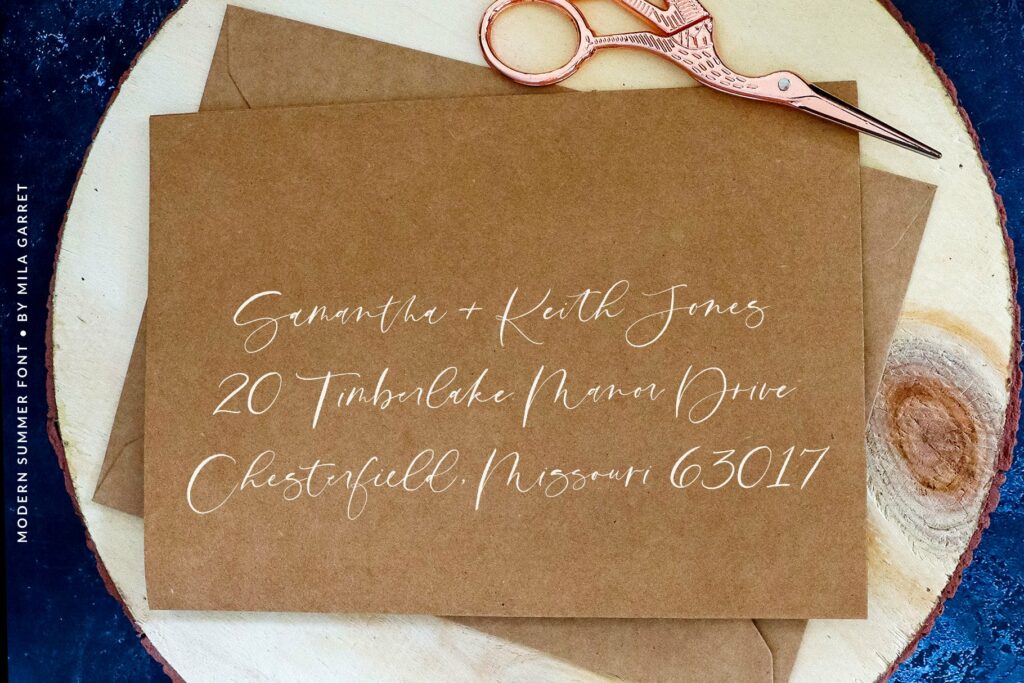 Samantha + Keith Jones
20 Timberlake Manor Drive
Chesterfield, Missouri 63017
MODERN SUMMER FONT • BY MILA GARRET